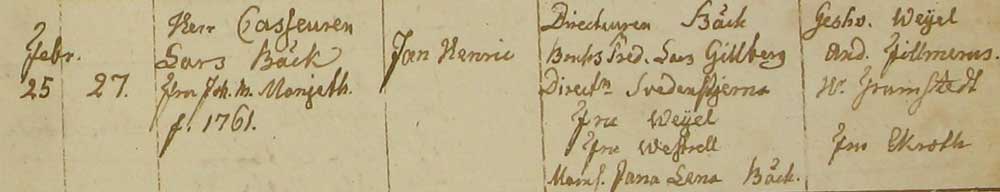 Febr.
25 27.
Herr Casseuren
Lars Bäck
Fru Joh. M. Monjeth.
f. 1761.
Jan Henric
Directeuren Bäck
Bruks Pred. Lars Gillberg
Direct:n Svedenstjerna
Fru Weijel
Fru Westrell
Mams. Jana Lena Bäck.
Geshv. Weijel
And. Fillmerus.
Hr. Framstedt
Fru Ekroth